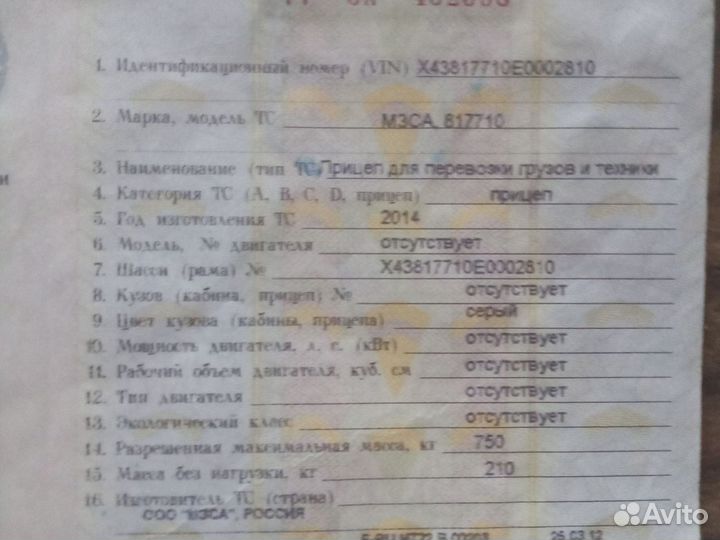 1. Идентификационный номер (VIN) X43817710E0002810
2. Марка, модель ТС МЗСА, 817710
3. Наименование (тип ТС) Прицеп для перевозки грузов и техники
и
4. Категория ТС (A, B, C, D, прицеп) прицеп
5. Год изготовления ТС 2014
6. Модель, № двигателя отсутствует
7. Шасси (рама) № X43817710E0002810
8. Кузов (кабина, прицеп) № отсутствует
9. Цвет кузова (кабины, прицепа) серый
10. Мощность двигателя, л. с. (кВт) отсутствует
11. Рабочий объем двигателя, куб. см отсутствует
12. Тип двигателя отсутствует
13. Экологический класс отсутствует
14. Разрешенная максимальная масса, кг 750
15. Масса без нагрузки, кг 210
16. Изготовитель ТС (страна)
ООО "МЗСА", РОССИЯ
26.03.12
Avito